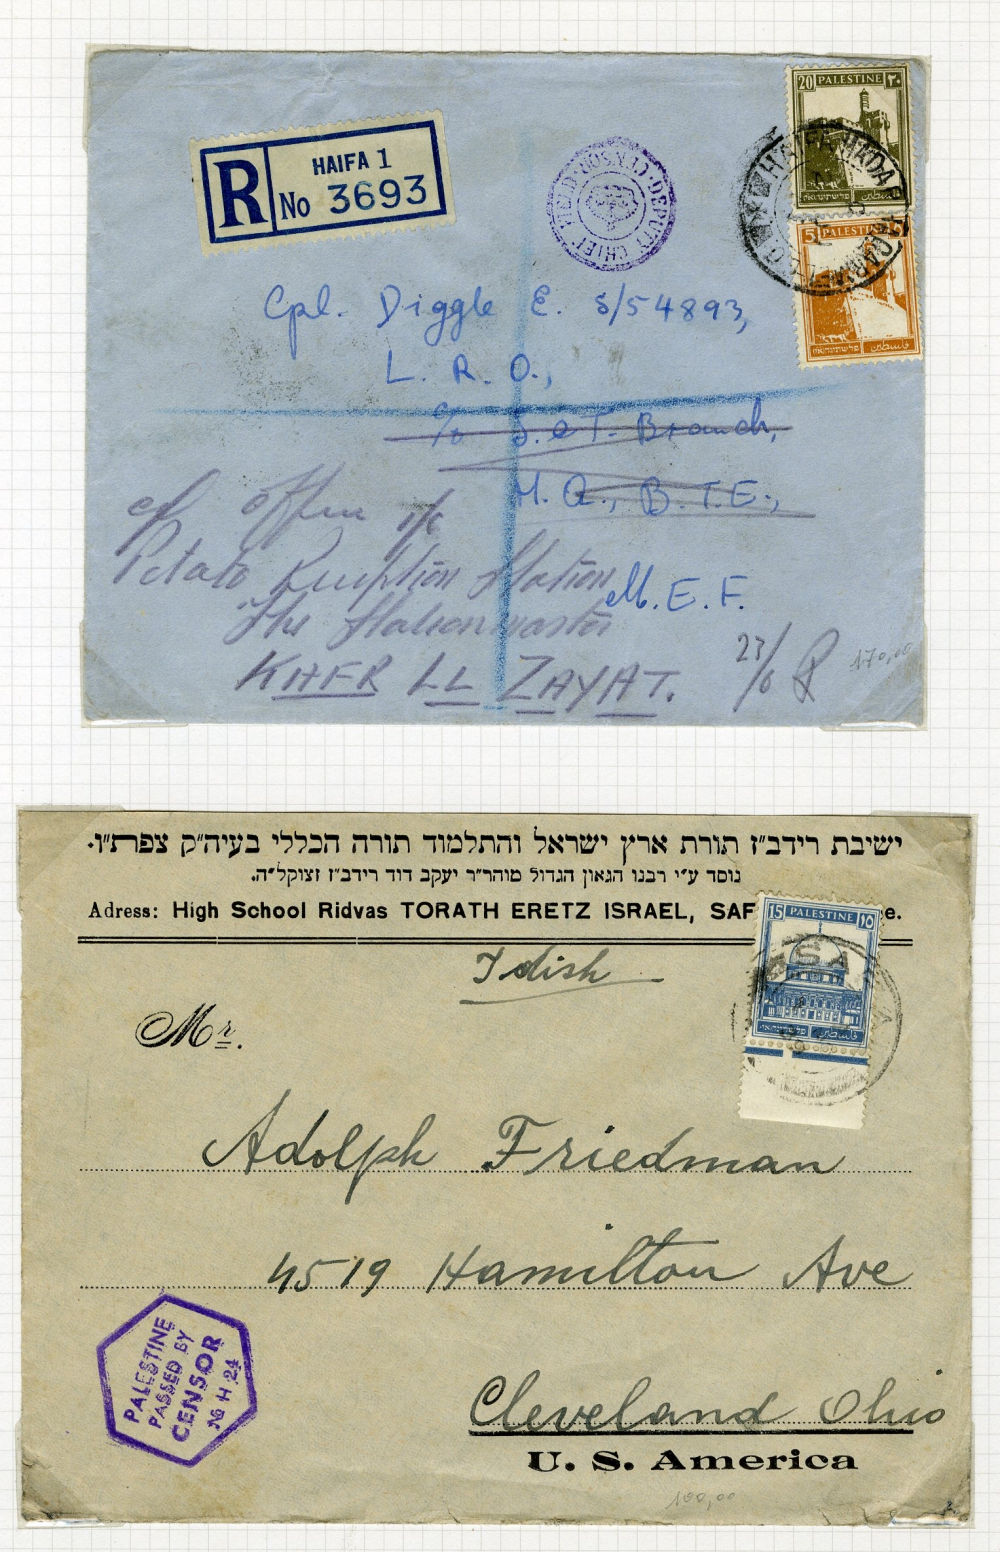 R
HAIFA 1
No 3693
DEPUTY CHIEF FIELD
20 PALESTINE ٢٠
فلسطين פלשתינה א״י
HAIFA
5 PALESTINE
فلسطين פלשתינה א״י
Cpl. Diggle E. S/54893,
L. R. O.,
c/o S. & T. Branch,
H. Q., B. T. E.,
M. E. F.
c/o Officer i/c
Potato Reception Station
The Stationmaster
KHFR LL ZAYAT.
23/
170,00
ישיבת רידב״ז תורת ארץ ישראל והתלמוד תורה הכללי בעיה״ק צפת״ו.
נוסד ע״י רבנו הגאון הגדול מוהר״ר יעקב דוד רידב״ז זצוקל״ה.
Adress: High School Ridvas TORATH ERETZ ISRAEL, SAF e.
15 PALESTINE ١٥
فلسطين פלשתינה א״י
Idish
Mr.
Adolph Friedman
4519 Hamilton Ave
Cleveland Ohio
U. S. America
PALESTINE
PASSED BY
CENSOR
H 24
100,00